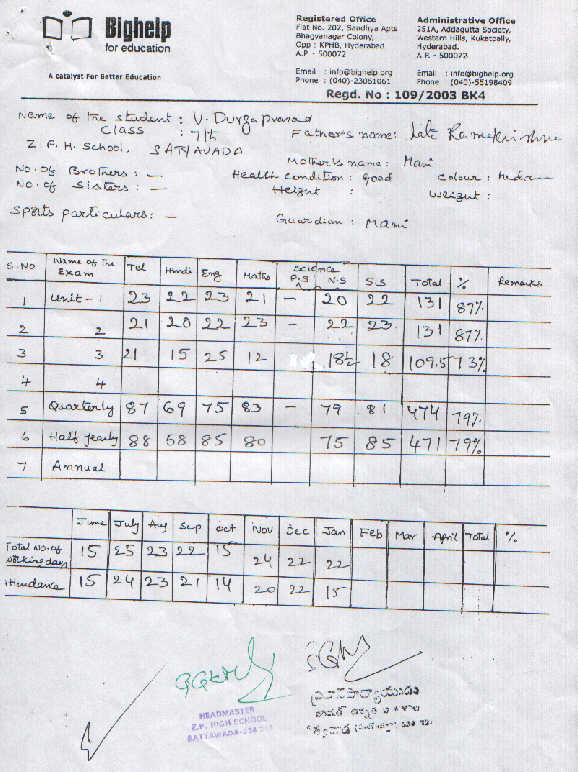 Bighelp
for education
A catalyst For Better Education
Registered Office
Flat No. 202, Sandhya Apts
Bhagyanagar Colony,
Opp : KPHB, Hyderabad
A.P. - 500072
Email : info@bighelp.org
Phone : (040)-23061061
Administrative Office
251A, Addagutta Society,
Western Hills, Kukatpally,
Hyderabad.
A.P. - 500072
Email : info@bighelp.org
Phone (040)-55198409
Regd. No : 109/2003 BK4
Name of the student : V. Durga Prasad
Class : 7th
Father's name: late
Z P. H. School, SATYAVADA
Mother's name : Mani
No. of Brothers : -
Health condition : good
colour :
No. of Sisters : -
Height :
weight :
Sports particulars: -
Guardian : Mani
S.No Name of the Exam Tel Hindi Eng Maths Science P.S N.S S.S Total % Remarks
1 Unit - 1 23 22 23 21 - 20 22 131 87%
2 2 21 20 22 23 - 22 23 131 87%
3 3 21 15 25 12 18½ 18 109.5 73%
4 4
5 Quarterly 87 69 75 83 - 79 81 474 79%
6 Half yearly 88 68 85 80 75 85 471 79%
7 Annual
June July Aug Sep oct Nov Dec Jan Feb Mar April Total %
Total No. of working days 15 25 23 22 15 24 22 22
Attendance 15 24 23 21 14 20 22 15
HEADMASTER
Z.P. HIGH SCHOOL